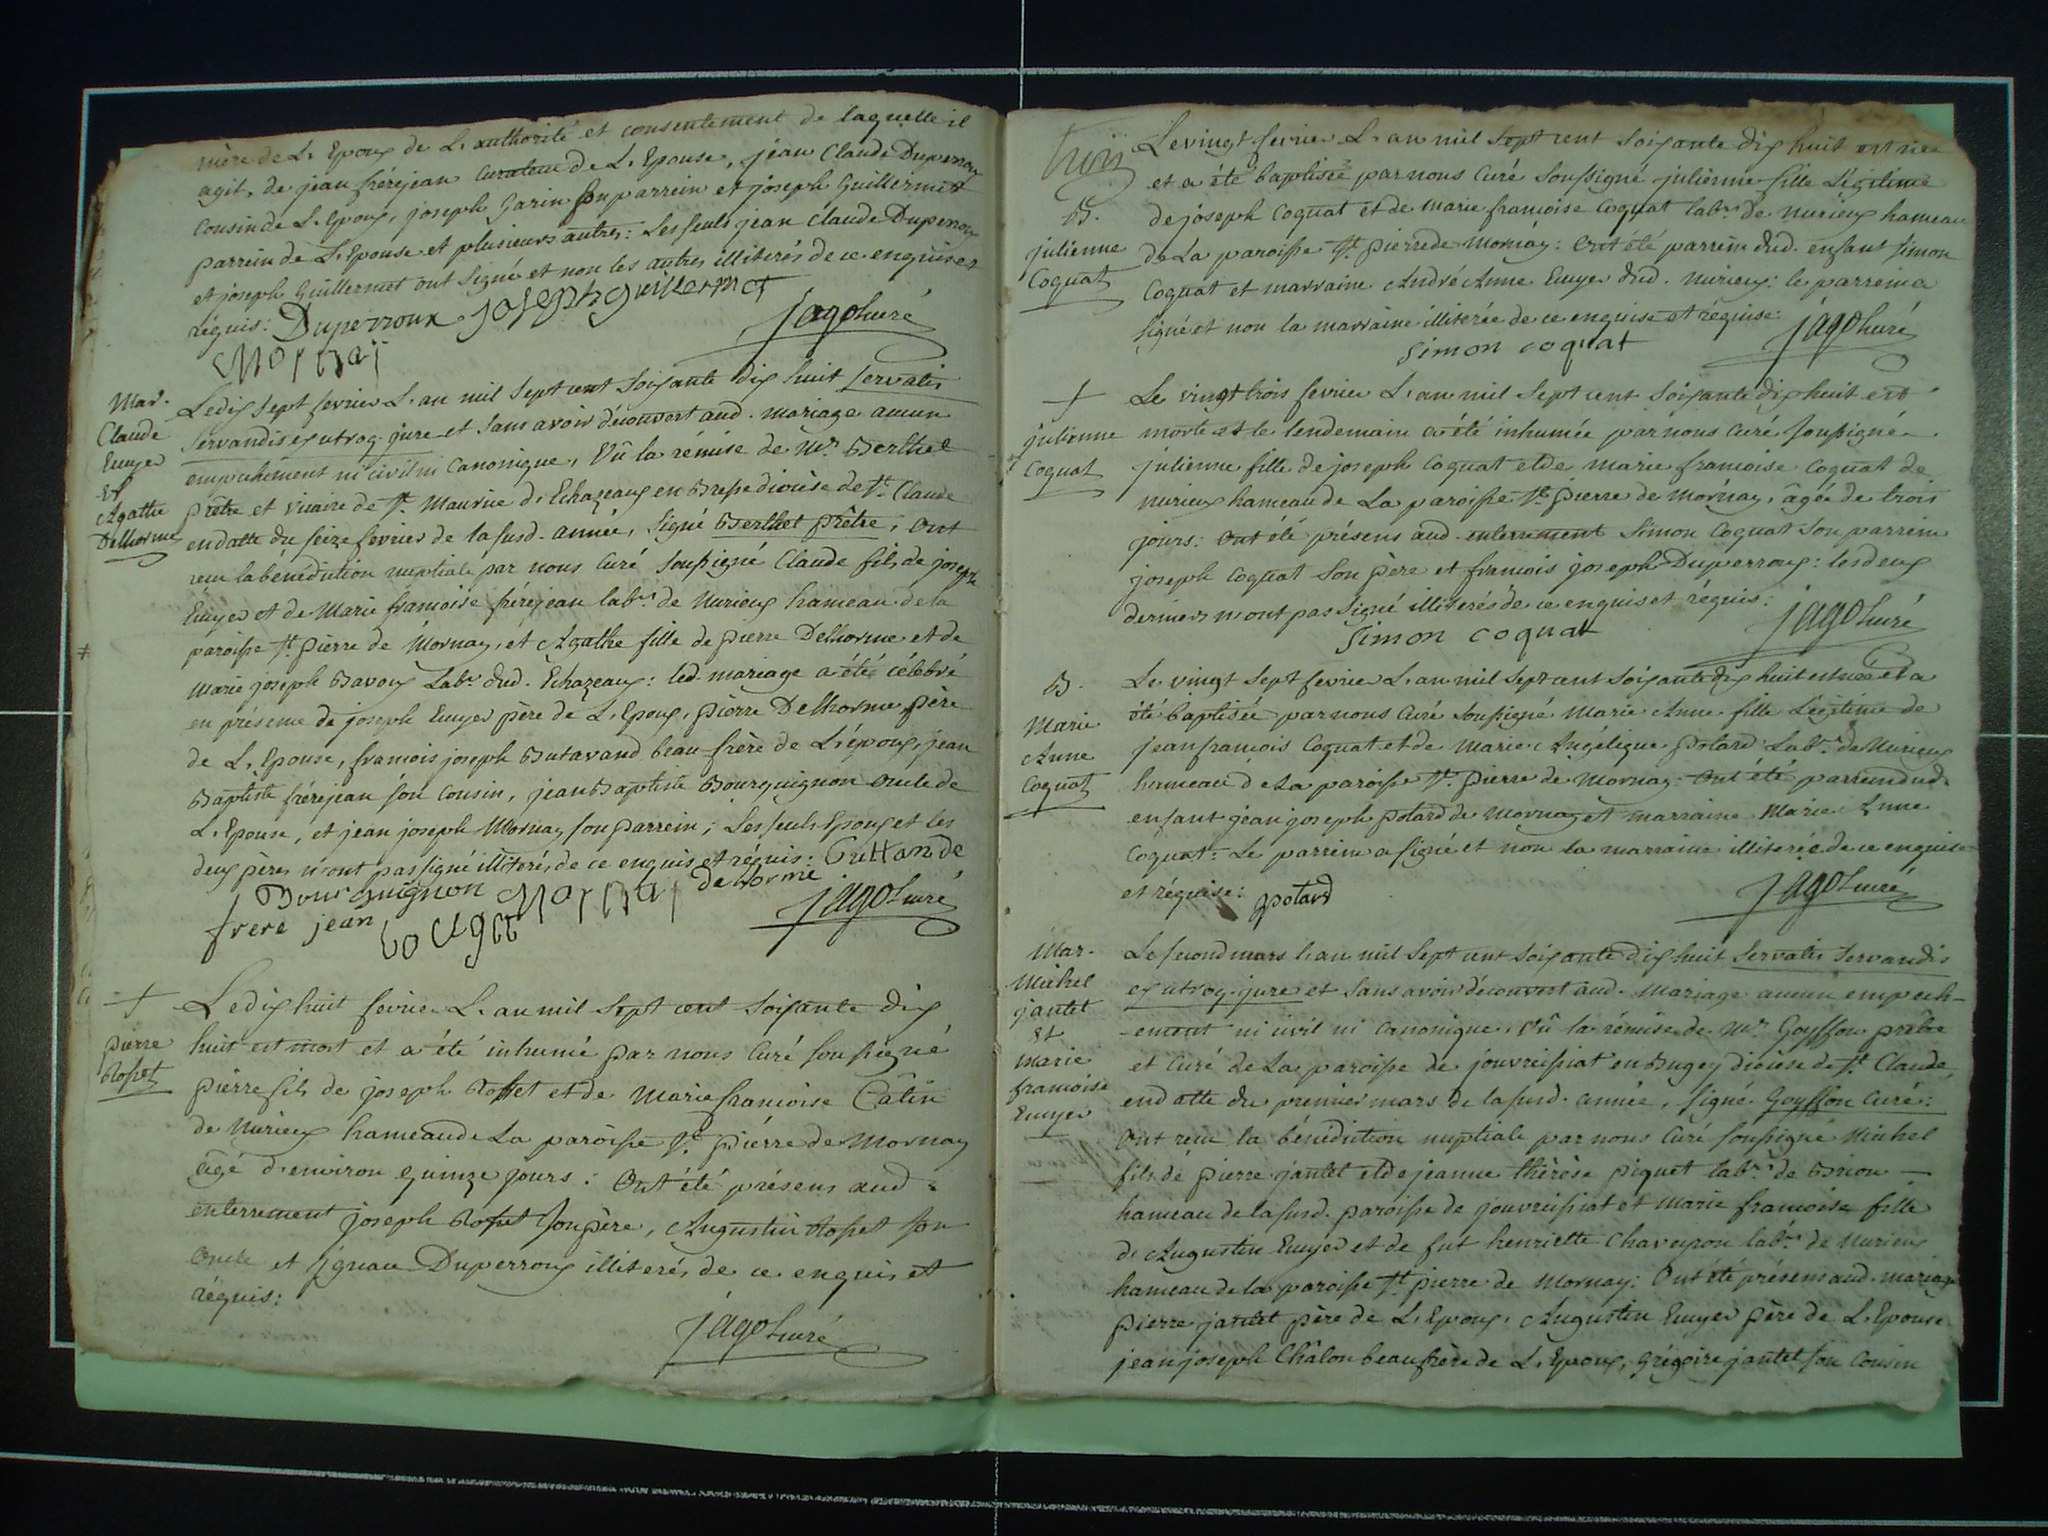 mère de L'Epoux de L'authorité et consentement de laquelle il
agit, de jean fréréjean curateur de L'Epouse, jean Claude Duperroux
Cousin de L'Epoux, joseph Garin son parrein et joseph Guillermet
parrein de L'Epouse et plusieurs autres: Les seuls jean Claude Duperroux
et joseph Guillermet ont signé et non les autres illiterés de ce enquis et
réquis: Duperroux joseph guillermet
Mornaÿ jago curé
Mar.
Claude
Emyer
et
Agathe
Delhorme
Le dix sept fevrier L'an mil sept cent soixante dix huit servatis
servandis ex utroq. jure et sans avoir découvert aud. mariage aucun
empechement ni civil ni canonique, Vû la rémise de Mr. Berthet
prêtre et vicaire de St. Maurice d'Echazeaux en Bresse diocèse de St. Claude
en datte du seize fevrier de la susd. année, signé Berthet prêtre; ont
reçu la bénédiction nuptiale par nous curé soussigné Claude fils de joseph
Emyer et de Marie françoise fréréjean labrs. de Nurieux hameau de la
paroisse St. pierre de Mornay, et Agathe fille de pierre Delhorme et de
Marie joseph Bavoux Labrs. dud. Echazeaux: led. mariage a été célébré
en présence de joseph Emyer père de L'Epoux, pierre Delhorme père
de L'Epouse, francois joseph Butavand beau frère de L'époux, jean
Baptiste fréréjean son cousin, jean Baptiste Bourguignon oncle de
L'Epouse, et jean joseph Mornay son parrein; Les seuls Epoux et les
deux pères n'ont pas signé illiterés de ce enquis et réquis:
Bourguignon Mornaÿ de lorme
frere jean jago curé
+
pierre
Rosset
Le dix huit fevrier L'an mil sept cent soixante dix
huit est mort et a été inhumé par nous curé soussigné
pierre fils de joseph Rosset et de Marie francoise Câlin
de Nurieux hameau de La paroisse St. pierre de Mornay
âgé d'environ quinze jours: Ont été présens aud.
enterrement joseph Rosset son père, Augustin Rosset son
oncle et ignace Duperroux illiterés de ce enquis et
réquis:
jago curé
Le vingt fevrier L'an mil sept cent soixante dix huit est née
et a été baptisée par nous Curé soussigné julienne fille Légitime
B.
julienne
Coquat
de joseph Coquat et de marie francoise Coquat labrs. de nurieux hameau
de La paroisse St. pierre de Mornay: Ont été parrein dud. enfant simon
Coquat et marraine André Anne Emyer dud. nurieux: le parrein a
signé et non la marraine illiterée de ce enquise et réquise:
simon coquat jago curé
+
julienne
Coquat
Le vingt trois fevrier L'an mil sept cent soixante dix huit est
morte et le lendemain a été inhumée par nous curé soussigné
julienne fille de joseph Coquat et de marie francoise Coquat de
nurieux hameau de La paroisse St. pierre de Mornay, âgée de trois
jours: Ont été présens aud. enterrement Simon Coquat son parrein
joseph Coquat son père et francois joseph Duperroux: les deux
derniers n'ont pas signé illiterés de ce enquis et réquis:
simon coquat jago curé
B.
Marie
Anne
Coquat
Le vingt sept fevrier L'an mil sept cent soixante dix huit est née et a
été baptisée par nous curé soussigné Marie Anne fille Légitime de
jean francois Coquat et de Marie Angélique potard Labrs. de Nurieux
hameau de La paroisse St. pierre de Mornay: Ont été parrein dud.
enfant jean joseph potard de Mornay et marraine Marie Anne
Coquat: Le parrein a signé et non la marraine illiterée de ce enquise
et réquise: potard jago curé
Mar.
Michel
jantet
et
Marie
francoise
Emyer
Le second mars L'an mil sept cent soixante dix huit servatis servandis
ex utroq. jure et sans avoir découvert aud. Mariage aucun empech-
-ement ni civil ni canonique. Vû la rémise de Mr. Goyffon prêtre
et curé de La paroisse de jouvreissiat en Bugey diocèse de St. Claude,
en datte du premier mars de la susd. année, signé Goyffon curé:
Ont reçu la bénédiction nuptiale par nous curé soussigné Michel
fils de pierre jantet et de jeanne thérèse piquet labrs. de Brion
hameau de la susd. paroisse de jouvreissiat et marie francoise fille
d'Augustin Emyer et de fut henriette Chaveyron labrs. de Nurieux
hameau de la paroisse St. pierre de Mornay: Ont été présens aud. mariage
pierre jantet père de L'Epoux, Augustin Emyer père de L'Epouse
jean joseph Châlon beau frère de L'Epoux, Grégoire jantet son cousin